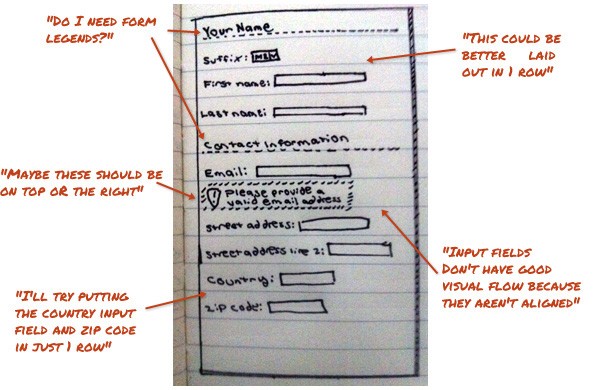 "Do I need form
legends?"
Your Name
Suffix:
First name:
Last name:
"This could be
better laid
out in 1 row"
Contact Information
Email:
! Please provide a
valid email address
"Maybe these should be
on top or the right"
street address:
street address line 2:
Country:
zip code:
"Input fields
don't have good
visual flow because
they aren't aligned"
"I'll try putting
the country input
field and zip code
in just 1 row"